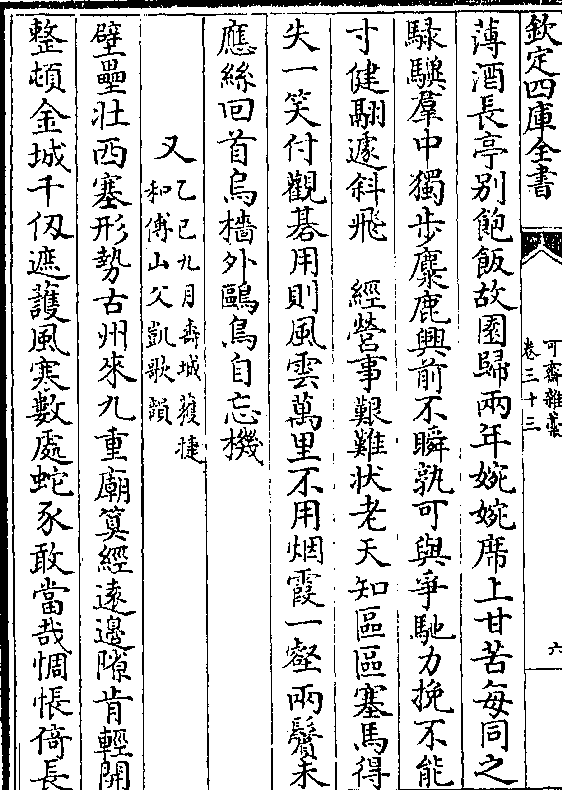 欽定四庫全書
可齋雜藁
卷三十三
六
薄酒長亭别飽飯故園歸兩年婉婉席上甘苦每同之
騄驥羣中獨步麋鹿興前不瞬孰可與爭馳力挽不能
寸健翮遽斜飛　經營事艱難狀老天知區區塞馬得
失一笑付觀碁用則風雲萬里不用烟霞一壑兩鬢未
應絲回首烏檣外鷗鳥自忘機
又
乙巳九月壽城獲捷
和傅山父凱歌韻
壁壘壯西塞形勢古州來九重廟算經遠邊隙肯輕開
整頓金城千仭遮護風寒數處蛇豕敢當哉惆悵倚長